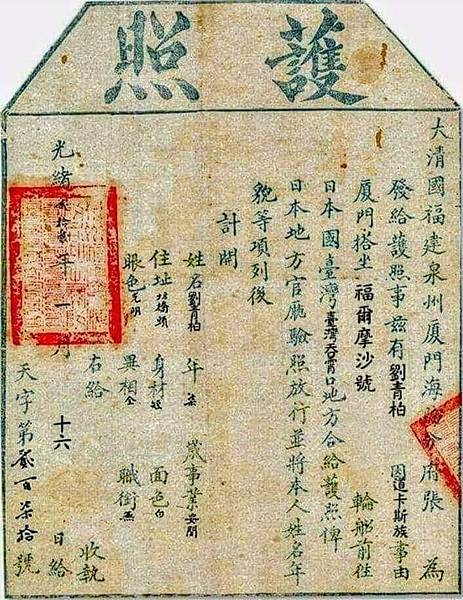 護照
大清國福建泉州厦門海防分府張 為
發給護照事兹有劉青柏 因道卡斯族事由
厦門搭坐福爾摩沙號 輪船前往
日本國臺灣臺灣吞霄口地方合給護照俾
日本地方官廳驗照放行並將本人姓名年
貌等項列後
計開
姓名劉青柏 年 歲 事業安閒
住址 身材 面色白
眼色光明 異相全 職銜無
右給 收執
光緒 年一月十六日給
天字第貳百柒拾號